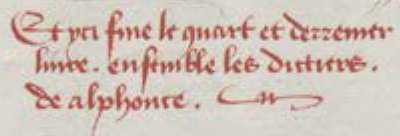 Et yci fine le quart et derrenier
livre. ensemble les dictiers.
de alphonce.